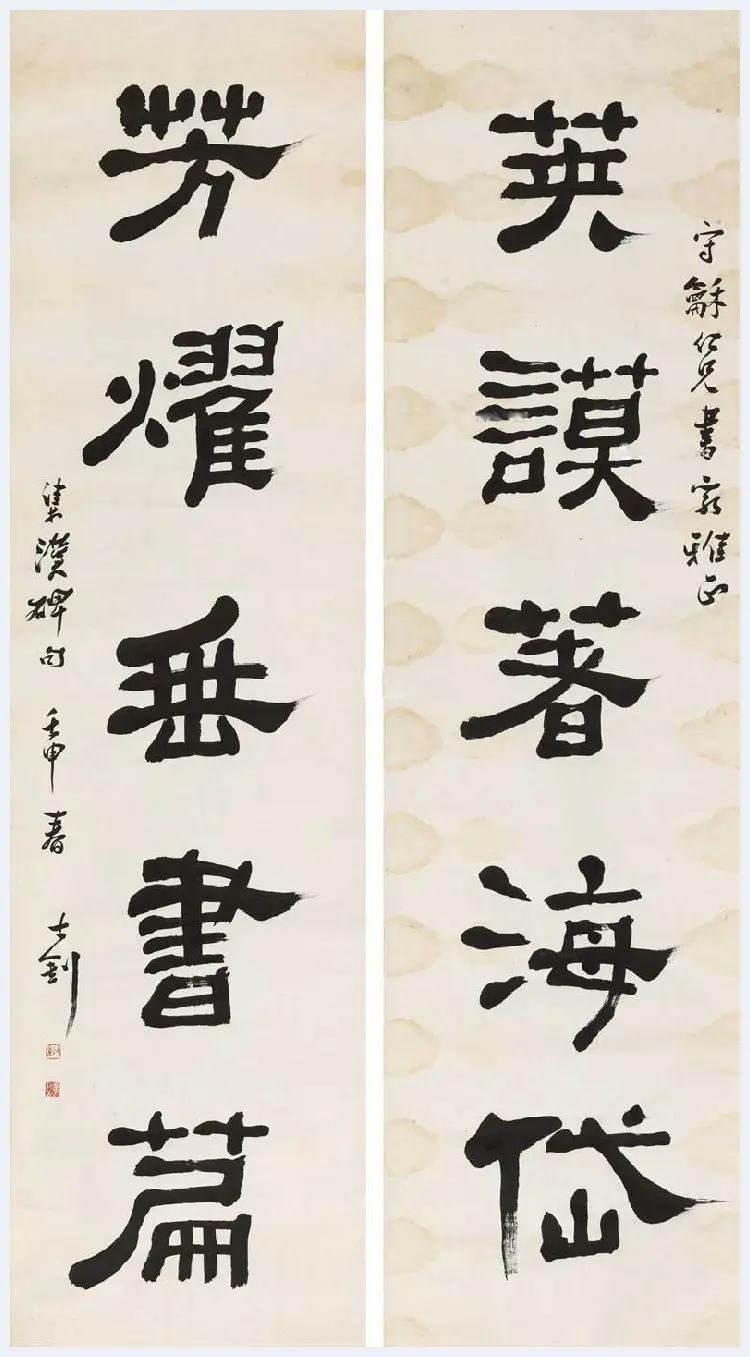 守龢仁兄書家雅正
英謨著海岱
芳燿垂書篇
集漢碑句 壬申春